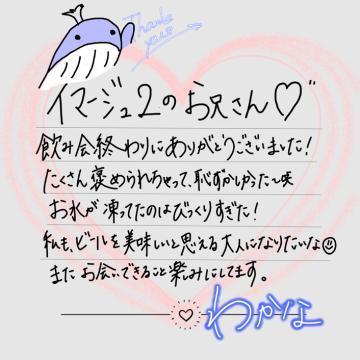 Thank you
イマージュ2のお兄さん♡
飲み会終わりにありがとうございました!
たくさん褒められちゃって、恥ずかしかった〜笑
お水が凍ってたのはびっくりすぎた!
私も、ビールを美味いと思える大人になりたいな☺
またお会いできること楽しみにしてます。
わかな